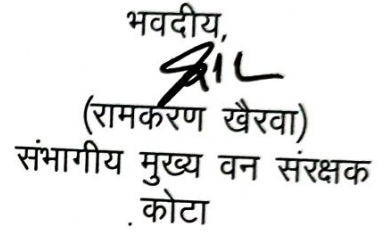 भवदीय,
(रामकरण खैरवा)
संभागीय मुख्य वन संरक्षक
कोटा